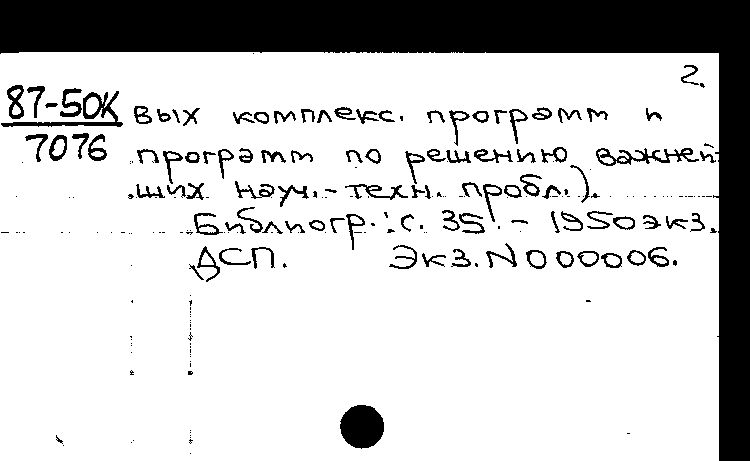 2.
87-50К
7076
вых комплекс. программ и
программ по решению важней-
ших науч.-техн. пробл.).
Библиогр.: с. 35. - 1950экз.
ДСП. Экз.N000006.